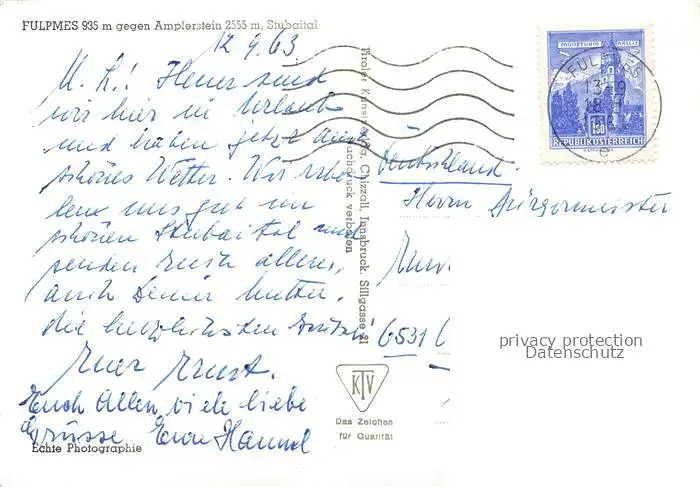 FULPMES 935 m gegen Ampferstein 2555 m, Stubaital
12.9.63
M. L.! Heuer sind
wir hier in Urlaub
und haben jetzt auch
schönes Wetter. Wir erho-
len uns gut im
schönen Stubaital und
senden Euch allen,
auch Deiner Mutter,
die herzlichsten Grüße
Euer Ernst.
Euch Allen viele liebe
Grüsse Eure Hannel
Echte Photographie
Tiroler Kunstverlag Chizzali, Innsbruck, Sillgasse 21
Nachdruck verboten
KTV
Das Zeichen
für Qualität
MÜNZTURM HALL
1.50
REPUBLIK ÖSTERREICH
FULPMES
e
Deutschland.
Herrn Bürgermeister
6531
privacy protection
Datenschutz